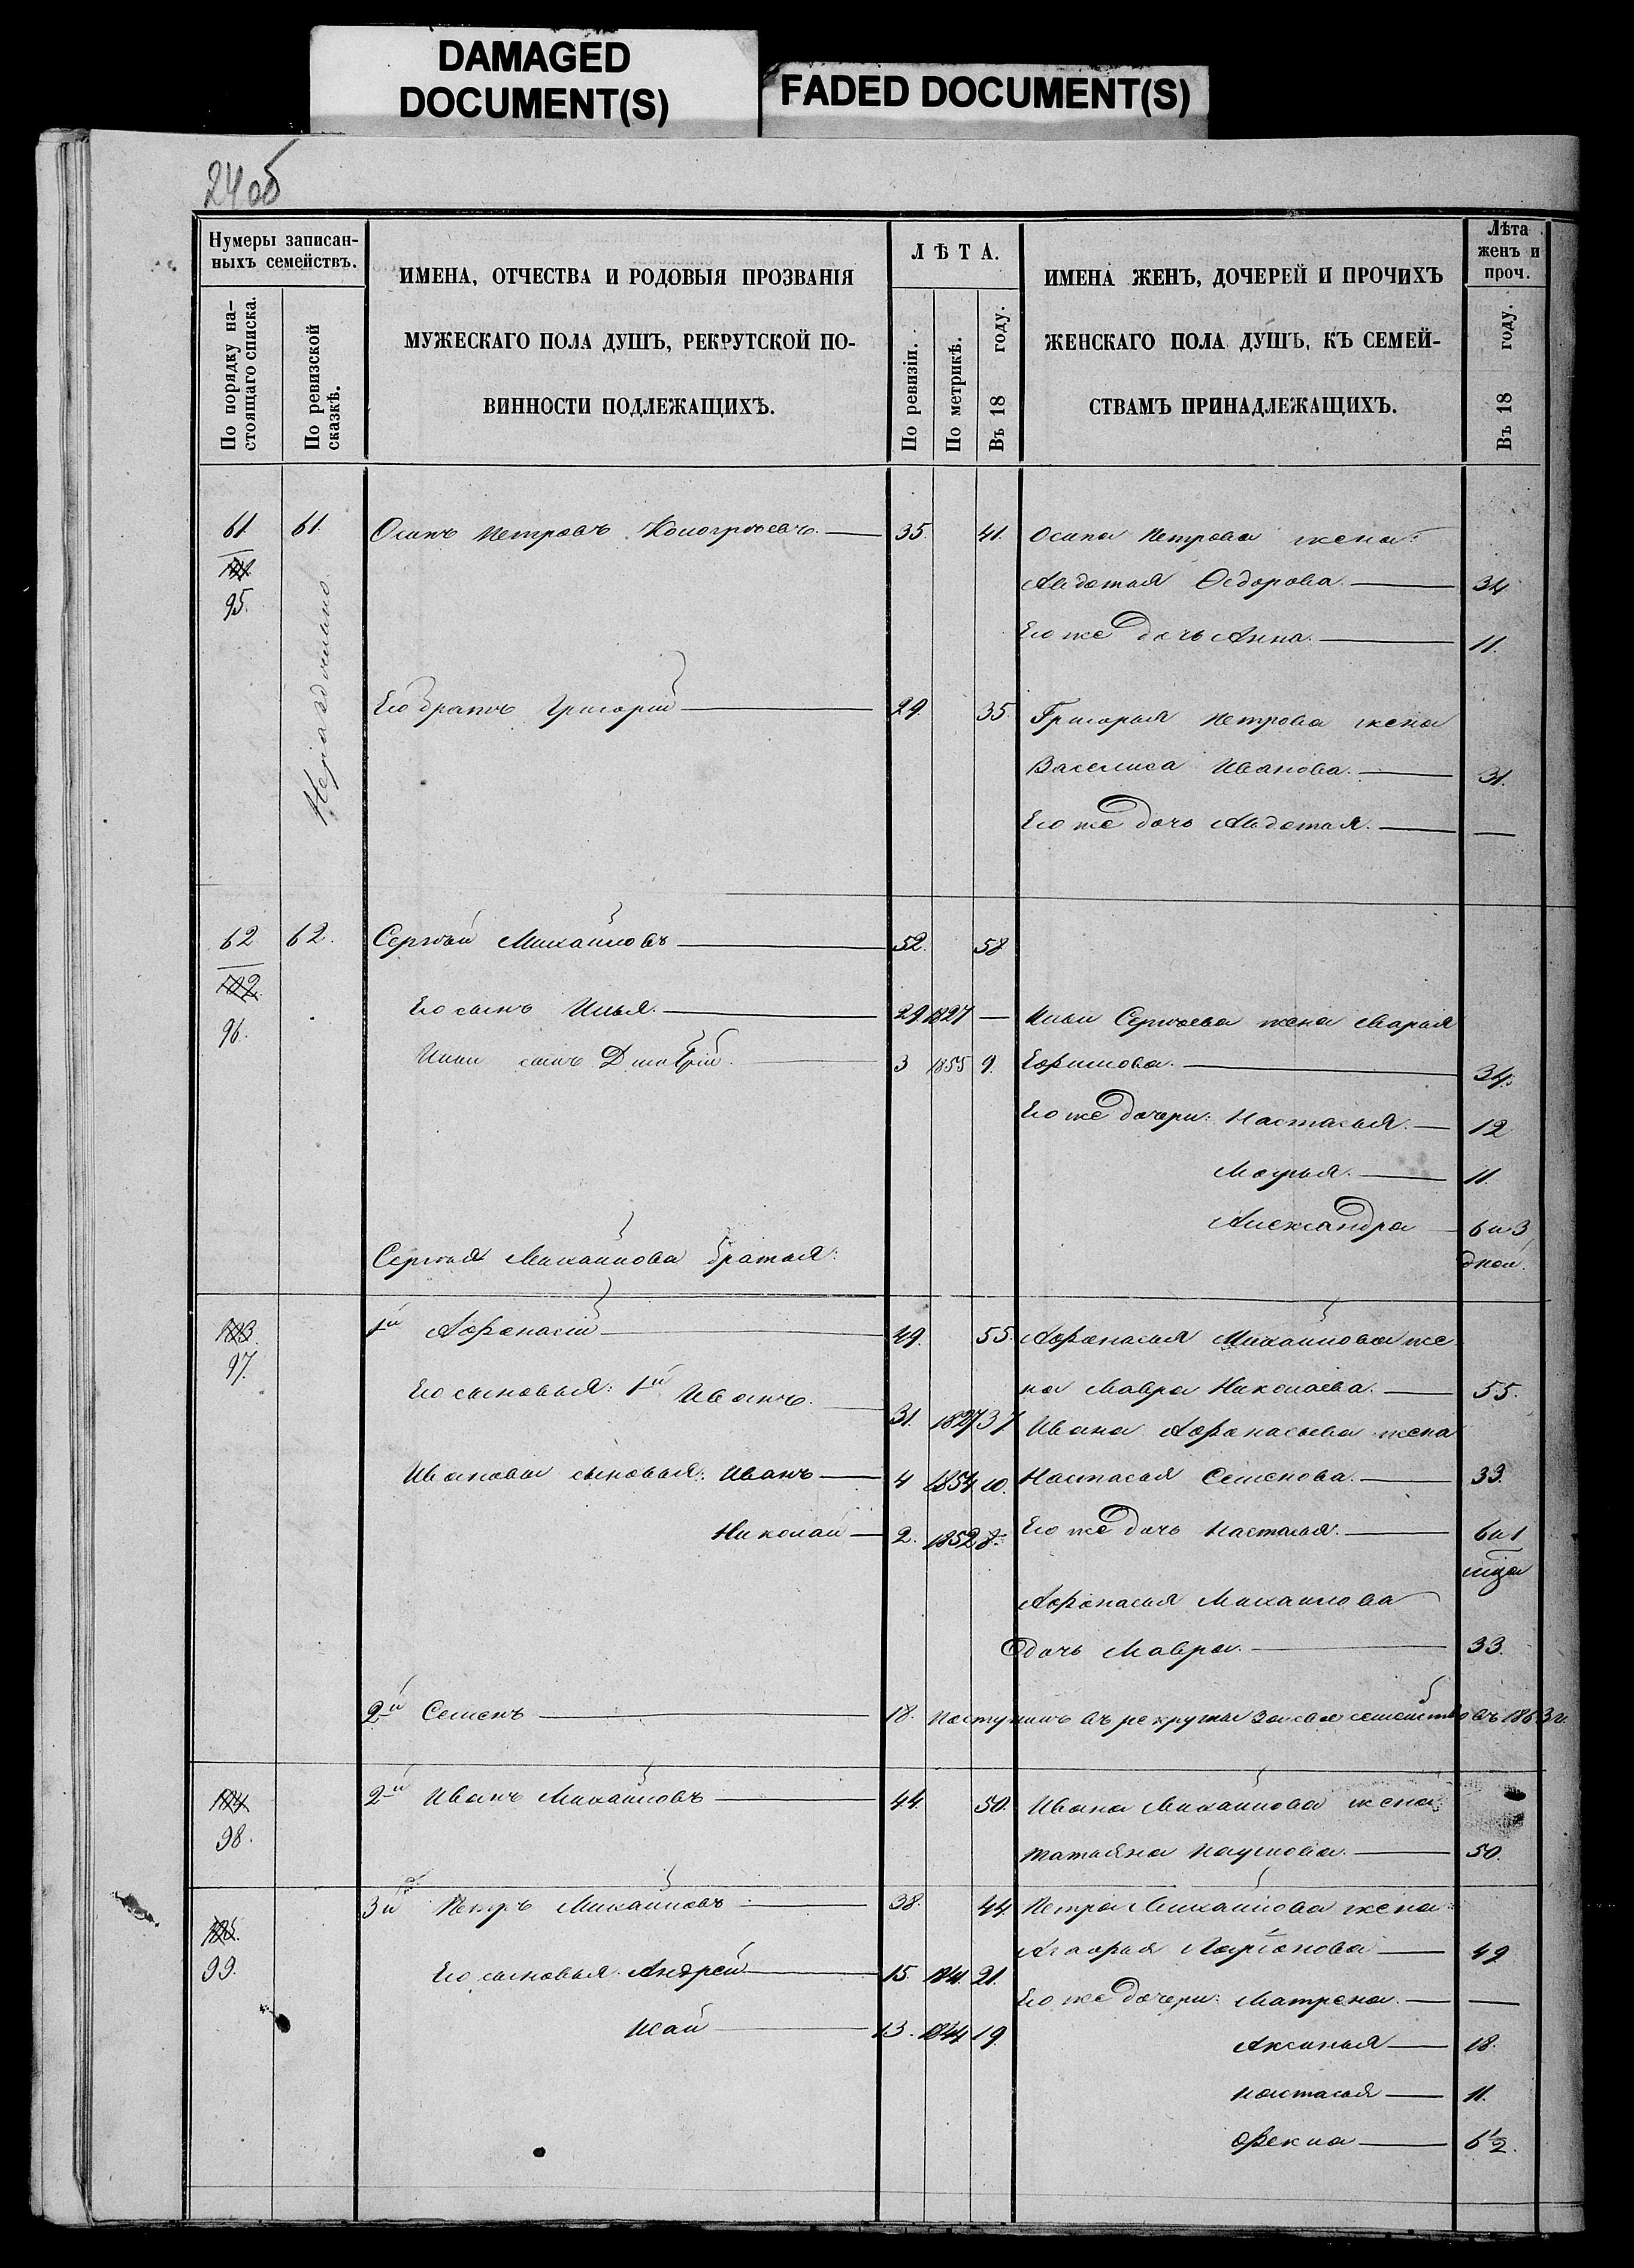 DAMAGED
DOCUMENT(S)
FADED DOCUMENT(S)
24об
Нумеры записан-
ныхъ семействъ.
По порядку на-
стоящаго списка.
По ревизской
сказкѣ.
ИМЕНА, ОТЧЕСТВА И РОДОВЫЯ ПРОЗВАНІЯ
МУЖЕСКАГО ПОЛА ДУШЪ, РЕКРУТСКОЙ ПО-
ВИННОСТИ ПОДЛЕЖАЩИХЪ.
ЛѢТА.
По ревизіи.
По метрикѣ.
Въ 18 году.
ИМЕНА ЖЕНЪ, ДОЧЕРЕЙ И ПРОЧИХЪ
ЖЕНСКАГО ПОЛА ДУШЪ, КЪ СЕМЕЙ-
СТВАМЪ ПРИНАДЛЕЖАЩИХЪ.
Лѣта
женъ и
проч.
Въ 18 году.
61. 61. Осипъ Петровъ 35. 41. Осипа Петрова жена:
101
95. Авдотья Ѳедорова. 34
Его же дочь Анна. 11.
Его братъ Григорій 29. 35. Григорья Петрова жена
Василиса Иванова. 31.
Его же дочь Авдотья. —
62 62. Сергѣй Михайловъ 52. 58
102
96. Его сынъ Илья. 29 1827 — Ильи Сергѣева жена Марья
Ильи сынъ Дмитрій. 3 1855 9. Ефимова. 34.
Его же дочери: Настасья. 12
Марья. 11.
Александра 6 и 3
дней.
Сергѣя Михайлова братья:
103
97. 1й Афонасій 49. 55. Афонасья Михайлова же-
на Мавра Николаева. 55.
Его сыновья: 1й Иванъ. 31. 1827 37 Ивана Афонасьева жена
Ивановы сыновья: Иванъ 4 1854 10. Настасья Семенова. 33.
Николай 2. 1852 8. Его же дочь Настасья. 6 и 1
мца
Афонасья Михайлова
дочь Мавра. 33.
2й Семенъ 18. Поступилъ въ рекруты за свое семейство въ 1863 г.
104
98. 2й Иванъ Михайловъ 44. 50. Ивана Михайлова жена:
Татьяна Наумова. 50.
105.
99. 3й Петръ Михайловъ 38. 44. Петра Михайлова жена:
Агафья Ларіонова 49
Его сыновья: Андрей 15. 1841 21.
Его же дочери: Матрена. —
Исай 13. 1844 19.
Аксинья 18.
Настасья 11.
Фекла 6½.